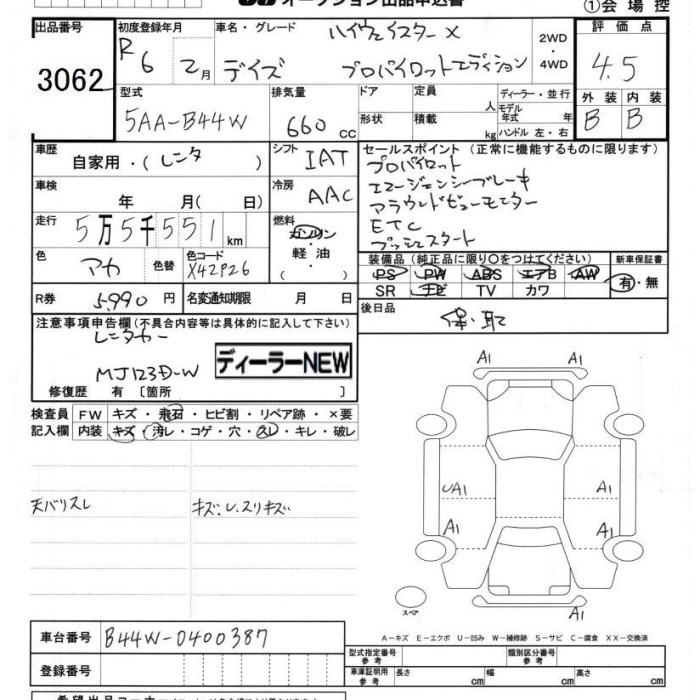 オークション出品申込書
①会場控
出品番号 3062
初度登録年月 R6 2月
車名・グレード ハイウェイスターX
デイズ プロパイロットエディション
2WD・4WD
評価点 4.5
外装 B 内装 B
型式 5AA-B44W
排気量 660cc
ドア 形状
定員 人
積載 kg
ディーラー・並行
モデル年式 年
ハンドル 左・右
車歴 自家用・(レンタ)
シフト IAT
車検 年 月(日)
冷房 AAC
走行 5万5千551km
燃料 ガソリン 軽油・
色 アカ 色替
色コード X42P26
R券 5,990円
名変通知期限 月 日
セールスポイント (正常に機能するものに限ります)
プロパイロット
エマージェンシーブレーキ
アラウンドビューモニター
ETC
プッシュスタート
装備品 (純正品に限り○をつけてください)
PS PW ABS エアB AW
SR ナビ TV カワ
新車保証書 有・無
後日品 保・取
注意事項申告欄(不具合内容等は具体的に記入して下さい)
レンタカー
MJ123D-W
ディーラーNEW
修復歴 有 〔箇所 〕
検査員記入欄
FW キズ・飛石・ヒビ割・リペア跡・×要
内装 キズ・汚レ・コゲ・穴・スレ・キレ・破レ
天バリスレ
キズ、U、スリキズ
A1 A1
UA1 A1
A1 A1
A1
スペア
A-キズ E-エクボ U-凹み W-補修跡 S-サビ C-腐食 XX-交換済
車台番号 B44W-0400387
登録番号
型式指定番号 参考
類別区分番号 参考
車庫証明用 参考 長さ cm 幅 cm 高さ cm
希望出品コーナー